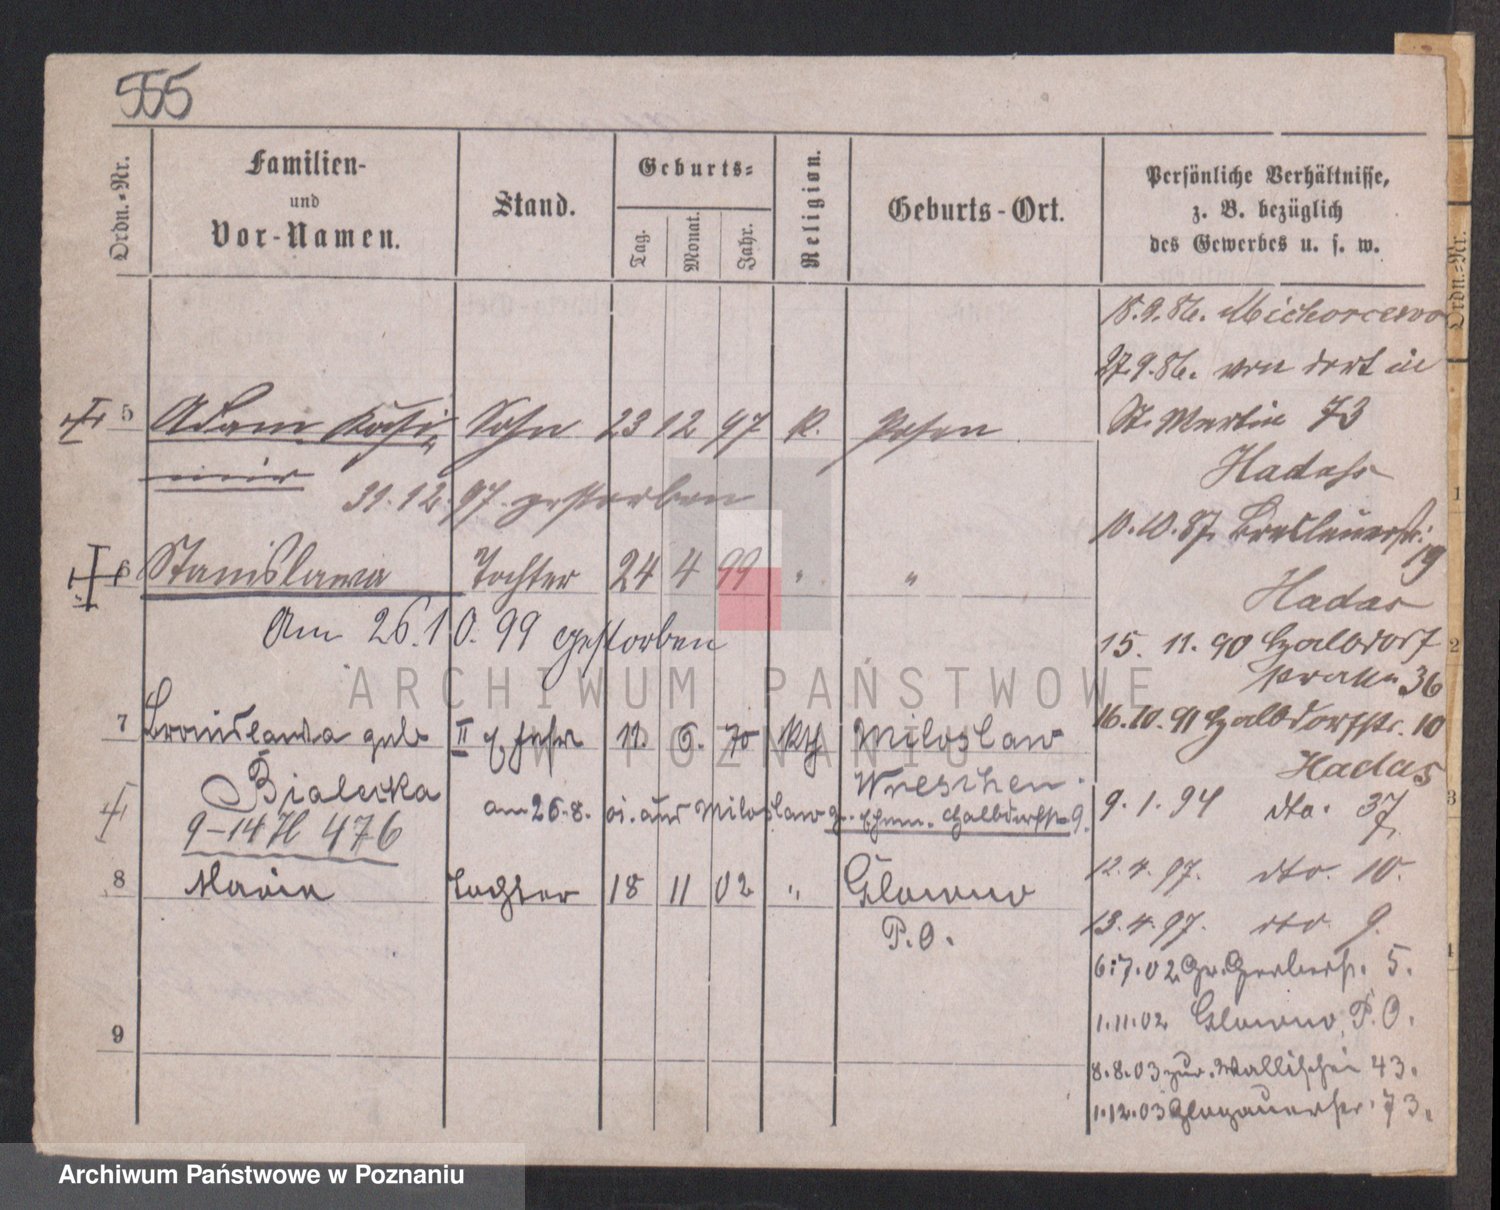 555
Ordn.-Nr.
Familien-
und
Vor-Namen.
Stand.
Geburts-
Tag.
Monat.
Jahr.
Religion.
Geburts-Ort.
Persönliche Verhältnisse,
z. B. bezüglich
des Gewerbes u. s. w.
Ordn.-Nr.
18.9.86.
27.9.86. von dort in
5 Adam Kasi- Sohn 23 12 97 K. Posen
St. Martin 73
mir
31.12.97 gestorben
10.10.87. Breslauerstr.
19
6 Stanislawa Tochter 24 4 99 " "
Hadas
Am 26.10.99 gestorben
15. 11. 90 Halbdorf
36
7 Bronislawa geb II Ehefr 11. 6. 70 kth Miloslaw
16.10.91 Halbdorfstr. 10
Bialecka Wreschen.
Hadas
am 26.8. 01. aus Miloslaw z. Ehem. Halbdorfstr 9.
9.1.94 dto. 37
9-14 H 476
12.4.97. dto. 10.
8 Maria Tochter 18 11 02 " Glowno
P.O.
13.4.97. dto 9.
6.7.02 Gr. Gerberstr. 5.
1.11.02 Glowno, P.O.
9
8.8.03 zur. Wallischei 43.
1.12.03 Glogauerstr. 73.
1
2
3
4
ARCHIWUM PAŃSTWOWE
W POZNANIU
Archiwum Państwowe w Poznaniu